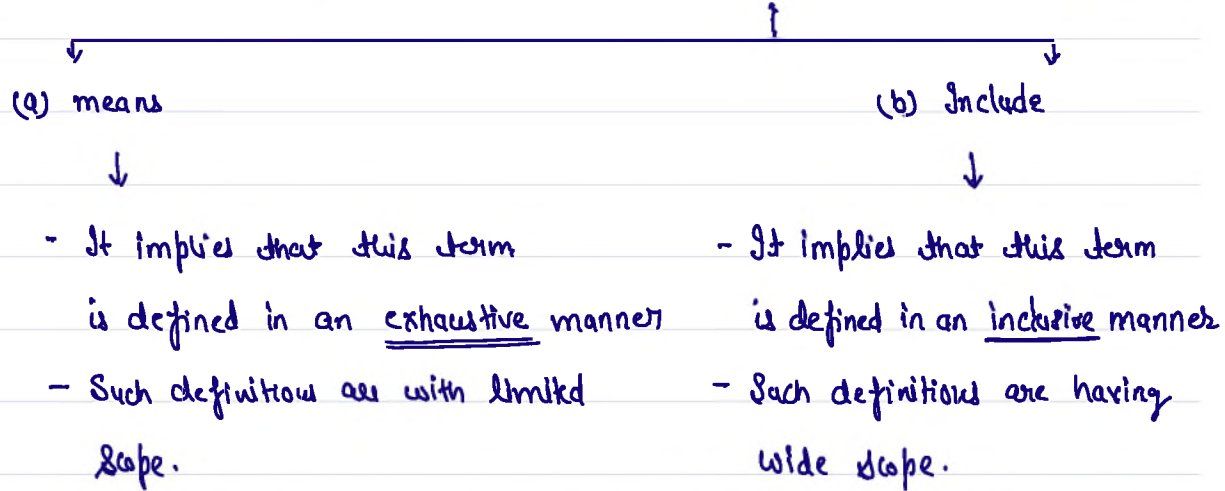 (a) means
(b) Include
- It implies that this term
is defined in an exhaustive manner
- Such definitions are with limited
scope.
- It implies that this term
is defined in an inclusive manner
- Such definitions are having
wide scope.